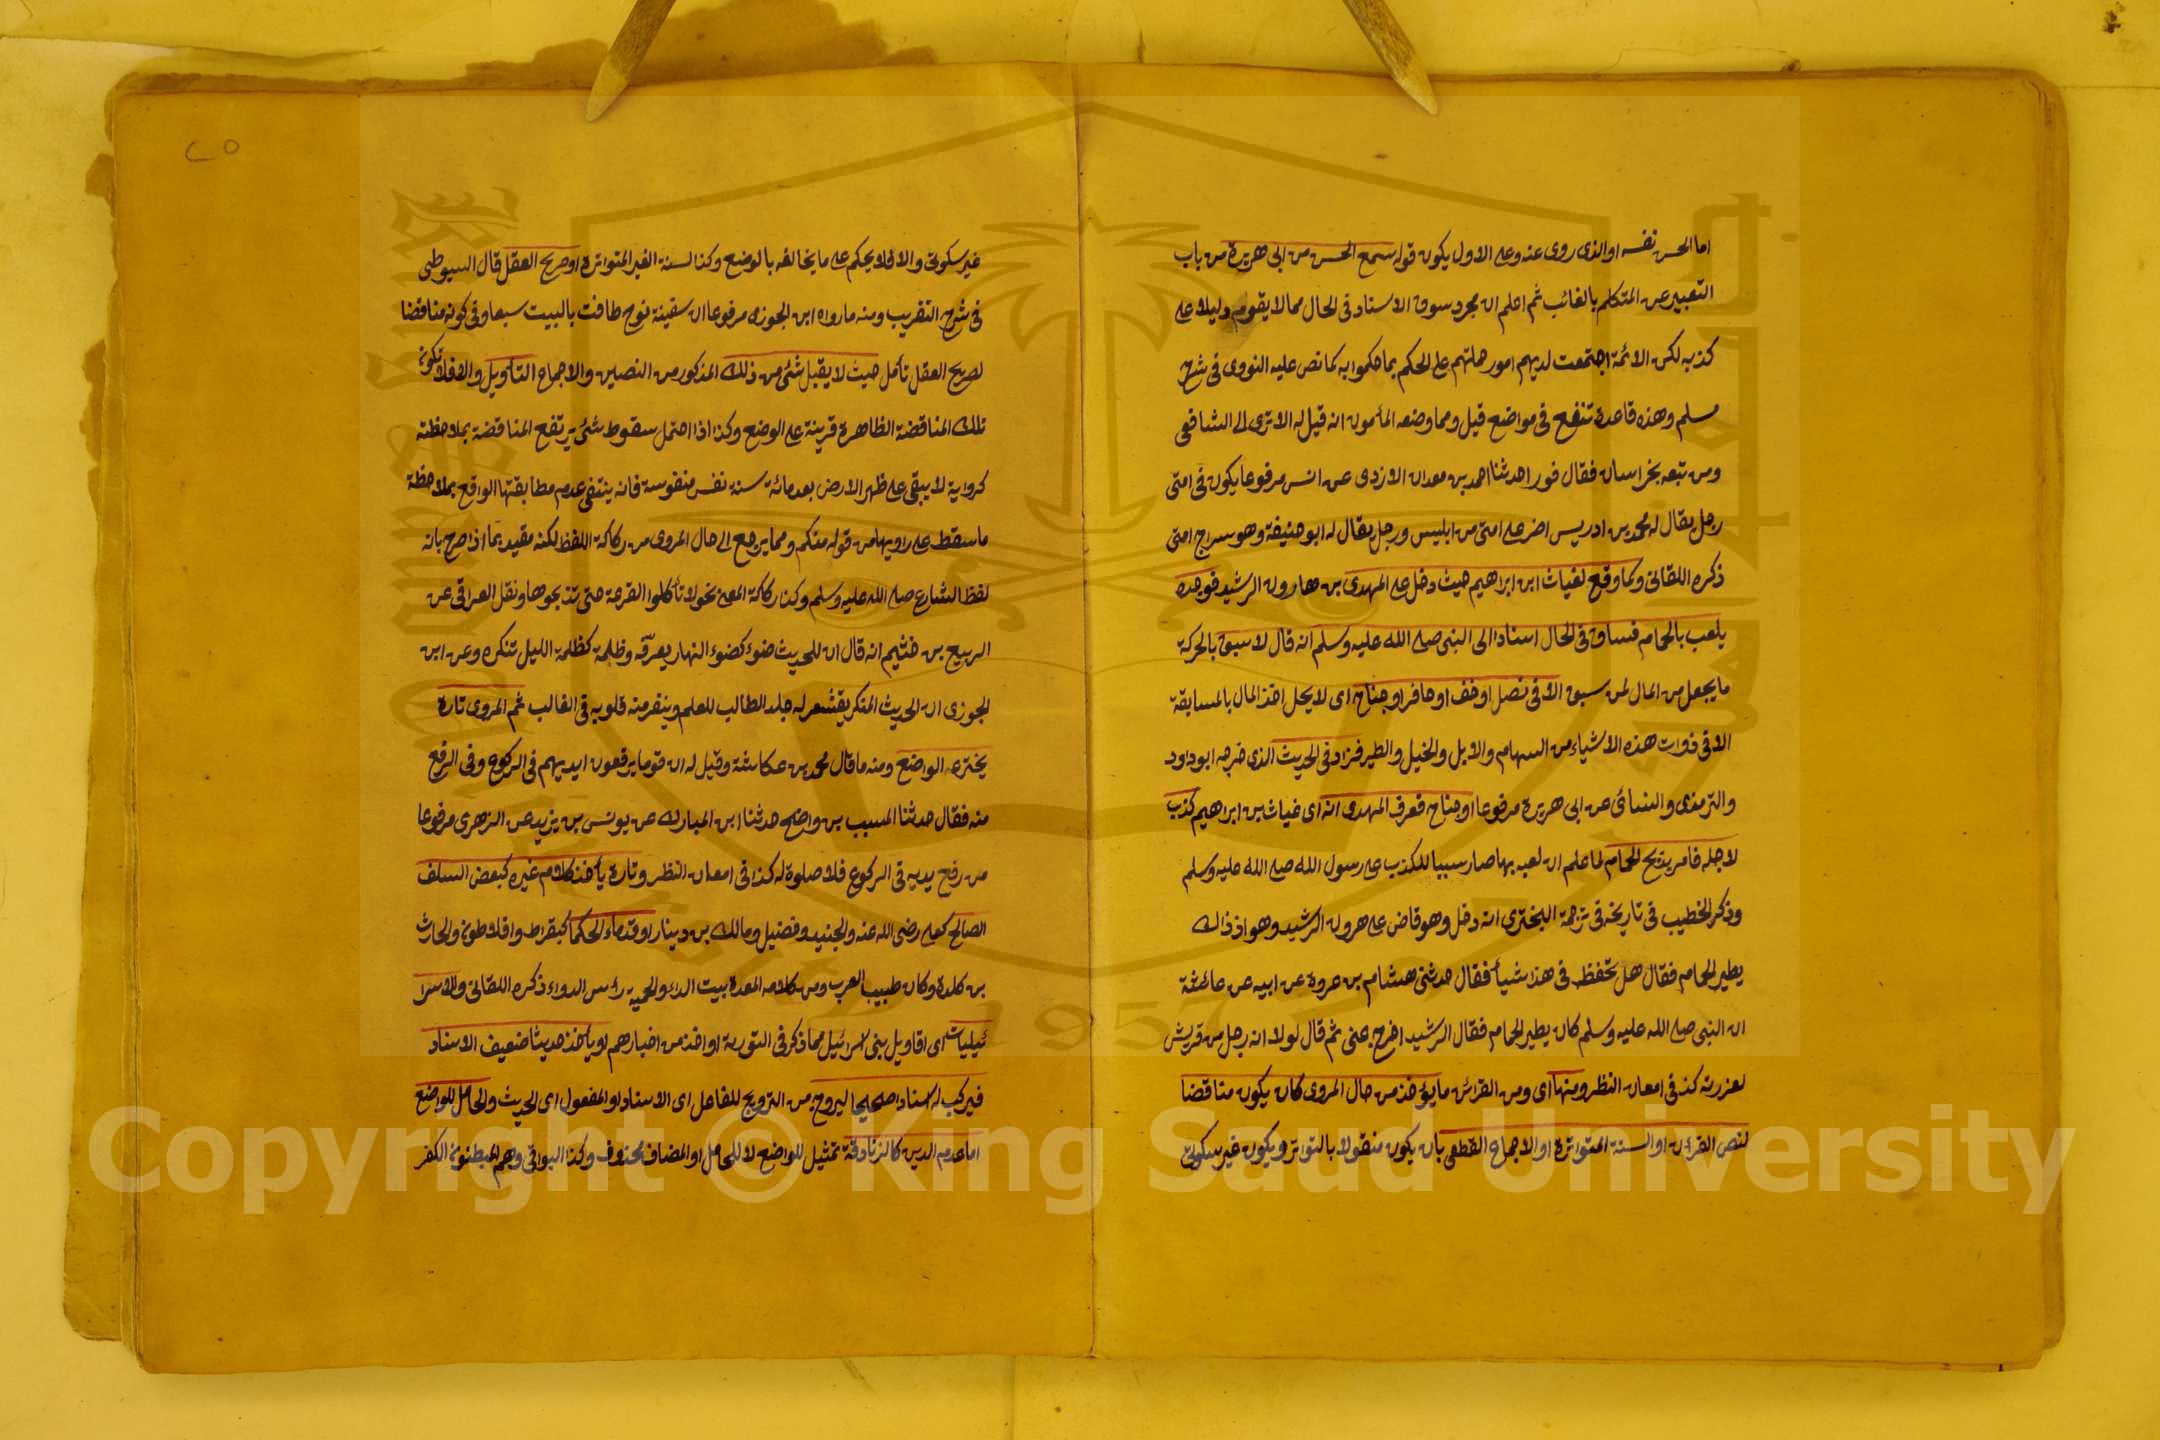 اما الحسن نفسه او الذى روى عنه وعلى الاول يكون قوله سمع الحسن من ابى هريرة من باب
التعبير عن المتكلم بالغائب ثم اعلم ان مجرد سوق الاسناد فى الحال مما لا يقوم دليلا على
كذبه لكن الائمة اجتمعت لديهم امور حملتهم على الحكم بما حكموا به كما نص عليه النووى فى شرح
مسلم وهذه قاعدة تنفع فى مواضع قيل ومما وضعه المأمون انه قيل له الا ترى الى الشافعى
ومن تبعه بخراسان فقال فورا حدثنا احمد بن معدان الازدى عن انس مرفوعا يكون فى امتى
رجل يقال له محمد بن ادريس اضر على امتى من ابليس ورجل يقال له ابو حنيفة وهو سراج امتى
ذكره اللقانى وكما وقع لغياث ابن ابراهيم حيث دخل على المهدى بن هارون الرشيد فوجده
يلعب بالحمام فساق فى الحال اسنادا الى النبى صلى الله عليه وسلم انه قال لا سبق بالحركة
ما يجعل من المال لمن سبق الا فى نصل او خف او حافر او جناح اى لا يحل اخذ المال بالمسابقة
الا فى ذوات هذه الاشياء من السهام والابل والخيل والطير فزاد فى الحديث الذى خرجه ابو داود
والترمذى والنسائى عن ابى هريرة مرفوعا او جناح فعرف المهدى انه اى غياث بن ابراهيم كذب
لاجله فامر بذبح الحمام لما علم ان لعبه بها صار سببا للكذب على رسول الله صلى الله عليه وسلم
وذكر الخطيب فى تاريخه فى ترجمة البخترى انه دخل وهو قاض على هرون الرشيد وهو اذ ذاك
يطير الحمام فقال هل تحفظ فى هذا شيأ فقال حدثنى هشام بن عروة عن ابيه عن عائشة
ان النبى صلى الله عليه وسلم كان يطير الحمام فقال الرشيد اخرج عنى ثم قال لولا انه رجل من قريش
لعزرته كذا فى امعان النظر ومنها اى ومن القرائن ما يؤخذ من حال المروى كان يكون مناقضا
لنص القرءان او السنة المتواترة او الاجماع القطعى بان يكون منقولا بالتواتر ويكون غير سكوتى
غير سكوتى والا فلا يحكم على ما يخالفه بالوضع وكذا السنة الغير المتواترة او صريح العقل قال السيوطى
فى شرح التقريب ومنه ما رواه ابن الجوزى مرفوعا ان سفينة نوح طافت بالبيت سبعا وفى كونه مناقضا
لصريح العقل تأمل حيث لا يقبل شئ من ذلك المذكور من النصين والاجماع التأويل والا فلا تكون
تلك المناقضة الظاهرة قرينة على الوضع وكذا اذا احتمل سقوط شئ يرتفع المناقضة بملاحظته
كرواية لا يبقى على ظهر الارض بعد مائة سنة نفس منفوسة فانه ينتفى عدم مطابقتها الواقع بملاحظة
ما سقط على راويها من قوله منكم ومما يرجع الى حال المروى من ركاكة اللفظ لكنه مقيد بما اذا صرح بانه
لفظ الشارع صلى الله عليه وسلم وكذا ركاكة المعنى نحو لا تأكلوا القرعة حتى تذبحوها ونقل العراقى عن
الربيع بن خثيم انه قال ان للحديث ضوء كضوء النهار يعرفه وظلمة كظلمة الليل تنكره وعن ابن
الجوزى ان الحديث المنكر يقشعر له جلد الطالب للعلم وينفر منه قلوبه فى الغالب ثم المروى تارة
يخترعه الواضع ومنه ما قال محمد بن عكاشة وقيل له ان قوما يرفعون ايديهم فى الركوع وفى الرفع
منه فقال حدثنا المسيب بن واضح حدثنا ابن المبارك عن يونس بن يزيد عن الزهرى مرفوعا
من رفع يديه فى الركوع فلا صلوة له كذا فى امعان النظر وتارة يأخذ كلام غيره كبعض السلف
الصالح كعلى رضى الله عنه والجنيد وفضيل ومالك بن دينار او قدماء الحكما كبقراط وافلاطون والحارث
بن كلدة وكان طبيب العرب ومن كلامه المعدة بيت الداء والحمية رأس الدواء ذكره اللقانى والاسرا
ئيليات اى اقاويل بنى اسرائيل مما ذكر فى التورية او اخذ من اخبارهم او يأخذ حديثا ضعيف الاسناد
فيركب له اسنادا صحيحا ليروج من الترويج للفاعل اى الاسناد او المفعول اى الحديث والحامل للواضع
اما عدم الدين كالزنادقة تمثيل للواضع لا للحامل او المضاف محذوف وكذا البواقى وهم المبطنون الكفر
٢٥
Copyright © King Saud University
1957